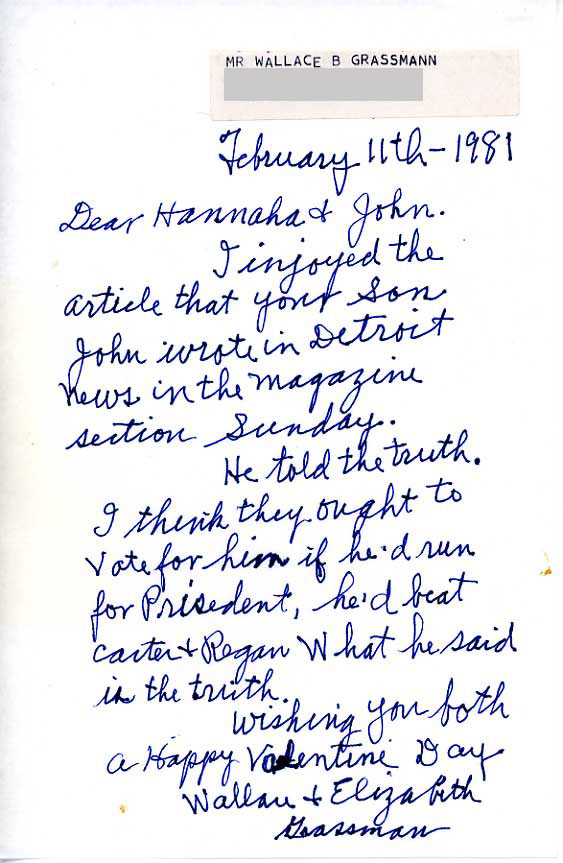 MR WALLACE B GRASSMANN
February 11th - 1981
Dear Hannaha & John.
I injoyed the
article that your Son
John wrote in Detroit
News in the magazine
section Sunday.
He told the truth.
I think they ought to
Vote for him if he'd run
for Prisedent, he'd beat
Carter & Regan What he said
is the truth.
Wishing you both
a Happy Valentine Day
Wallace & Elizabeth
Grassman